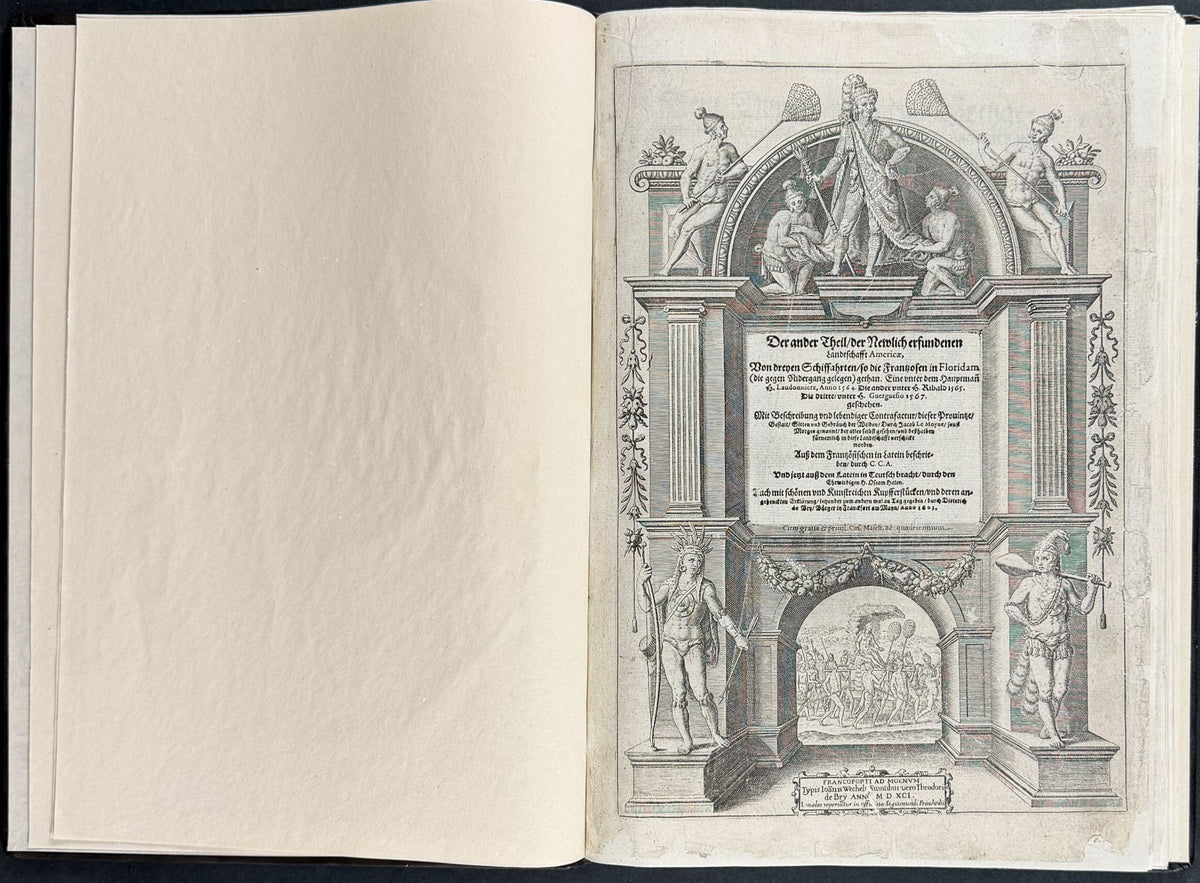 Der ander Theil/der Newlich erfundenen
Landtschafft Americæ,
Von dreyen Schiffahrten/so die Frantzosen in Floridam
(die gegen Nidergang gelegen) gethan. Eine vnter dem Hauptmañ
H. Laudonniere, Anno 1564. Die ander vnter H. Ribald 1565.
Die dritte/vnter H. Guerguesio 1567.
geschehen.
Mit Beschreibung vnd lebendiger Contrafactur/dieser Prouintze/
Gestalt/Sitten vnd Gebräuch der Wilden/Durch Jacob Le Moyne/sonst
Morges genannt/der alles selbst gesehen/vnd deßhalben
fürnemlich in diese Landtschafft verschickt
worden.
Auß dem Frantzösischen in Latein beschrie-
ben/durch C. C. A.
Vnd jetzt auß dem Latein in Teutsch bracht/durch den
Ehrwirdigen H. Oseam Halen.
Auch mit schönen vnd Kunstreichen Kupfferstücken/vnd deren an-
gehenckten Erklärung/jetzunder zum andern mal an Tag gegeben/durch Dieterich
de Bry/Bürger in Franckfort am Mayn/Anno 1601.
Cum gratia & priuil. Cæs. Maiest. ad quadriennium.
FRANCOFORTI AD MOENVM
Typis Ioānis Wecheli Sumtibus vero Theodori
de Bry ANNO M D XCI.
Venales reperiūtur in officina Sigismundi